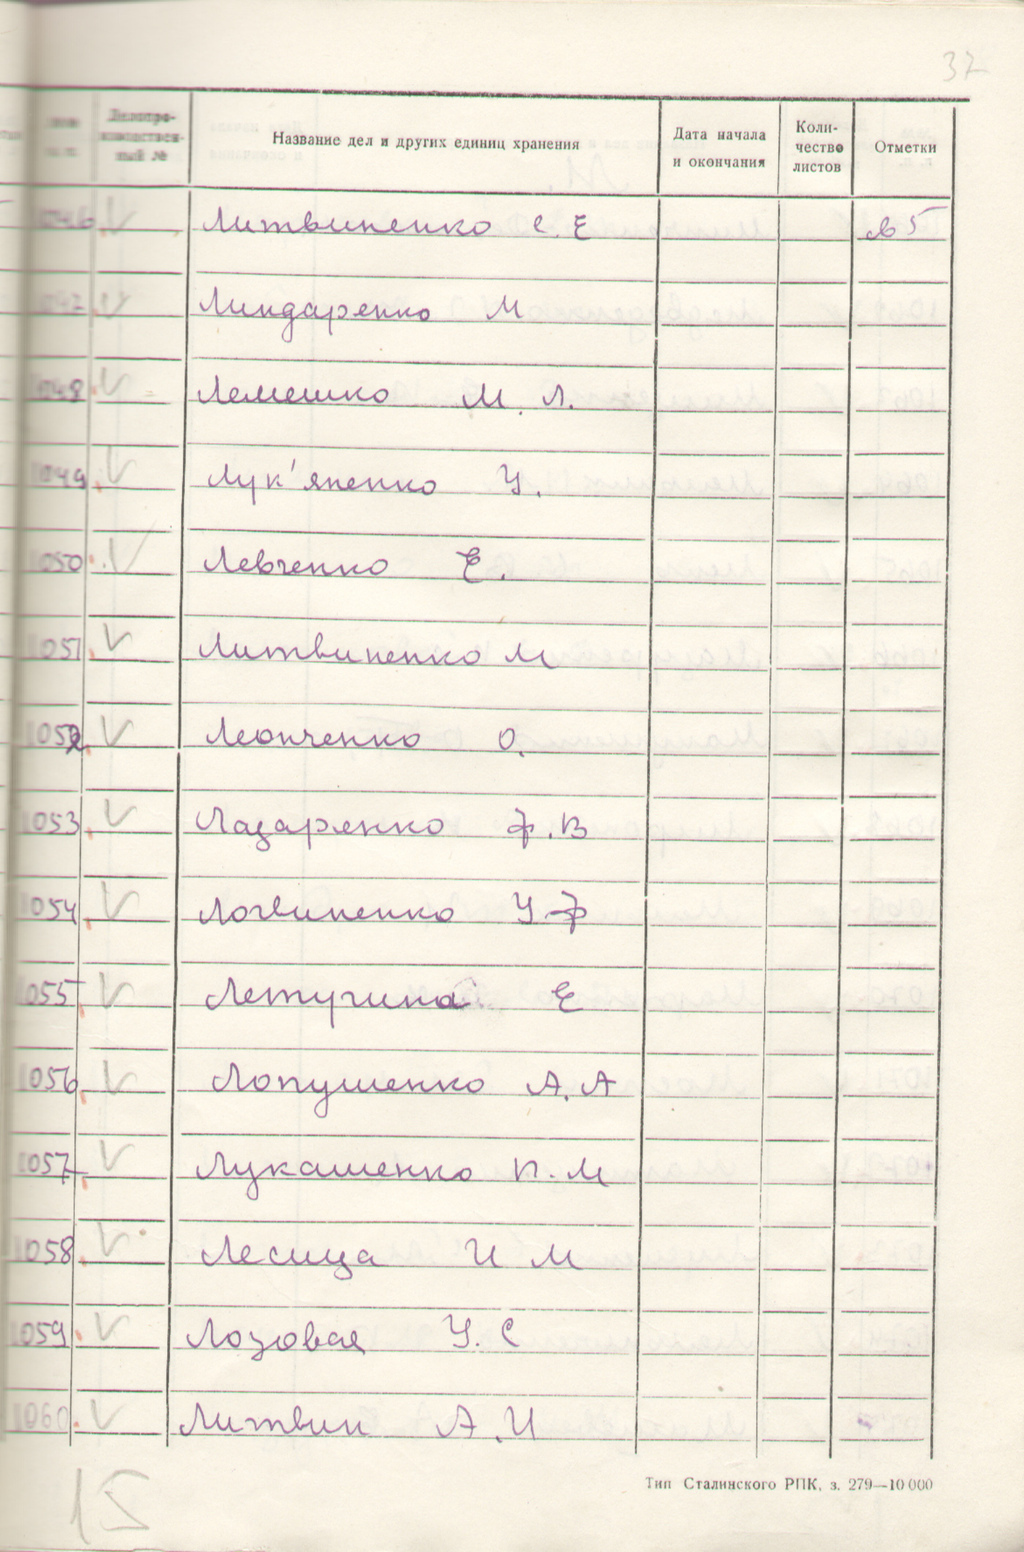 37
Делопро-
изводствен-
ный №
Название дел и других единиц хранения
Дата начала
и окончания
Коли-
чество
листов
Отметки
1046 Литвиненко С. Е
1047 Линдаренко М
1048 Лемешко М. Л.
1049 Лук'яненко У.
1050 Левченко Е.
1051 Литвиненко М
1052 Леонченко О.
1053 Лазаренко Ф. В
1054 Логвиненко У Ф
1055 Летучина Е
1056 Лопушенко А. А
1057 Лукашенко П. М
1058 Лесица И М
1059 Лозовая У. С
1060 Литвин А. И
15
Тип Сталинского РПК, з. 279—10 000